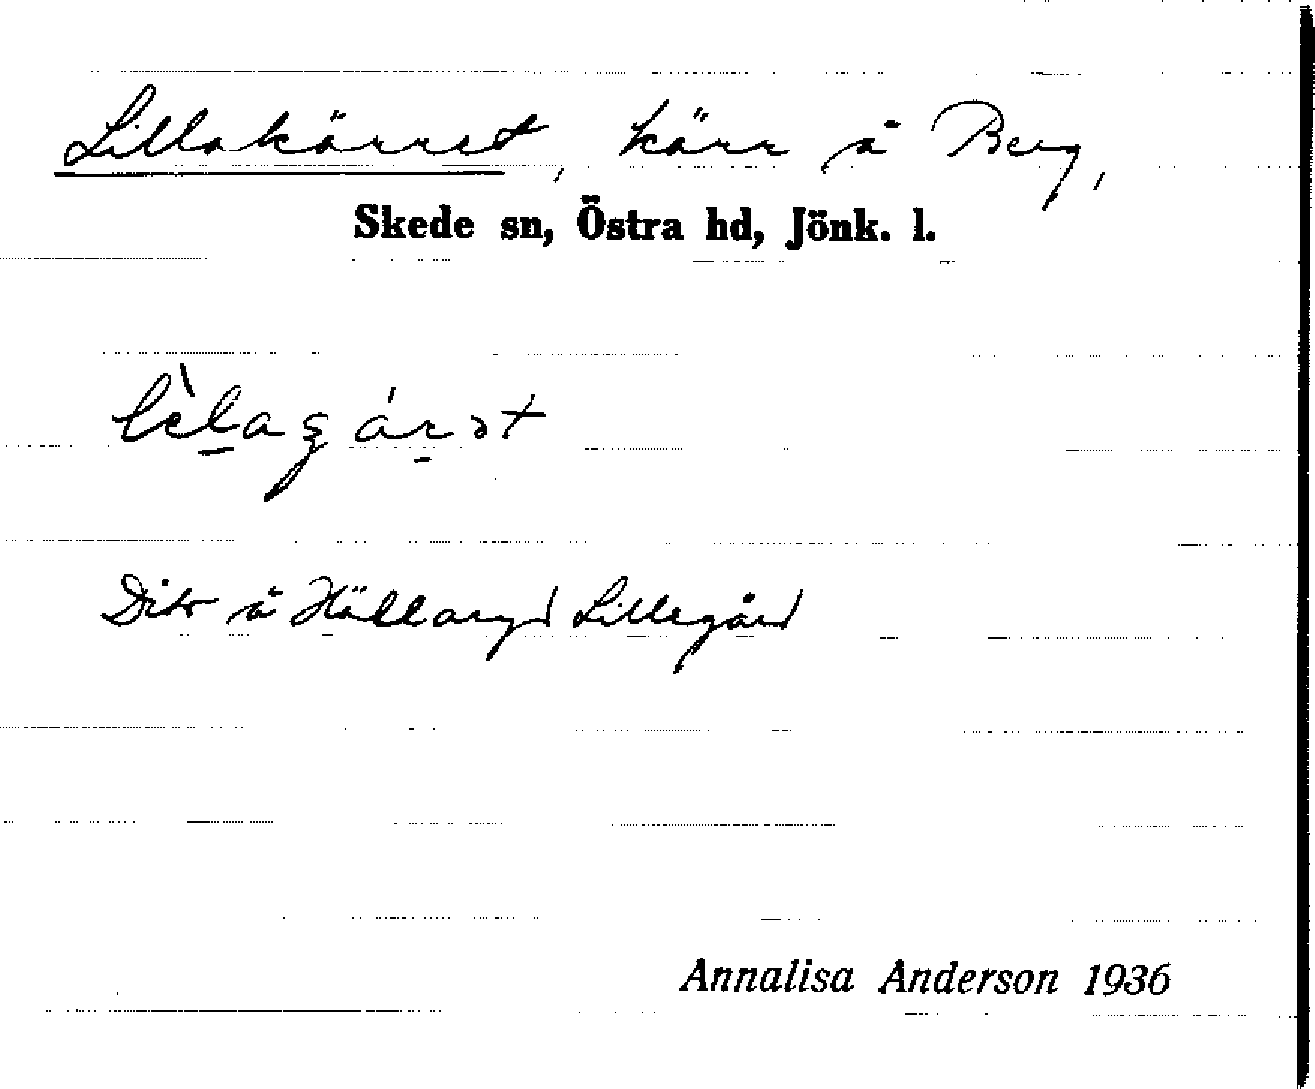 Lillakärret, kärr å Berg,
Skede sn, Östra hd, Jönk. l.
Dito å Hällaryd Lillegård
Annalisa Anderson 1936